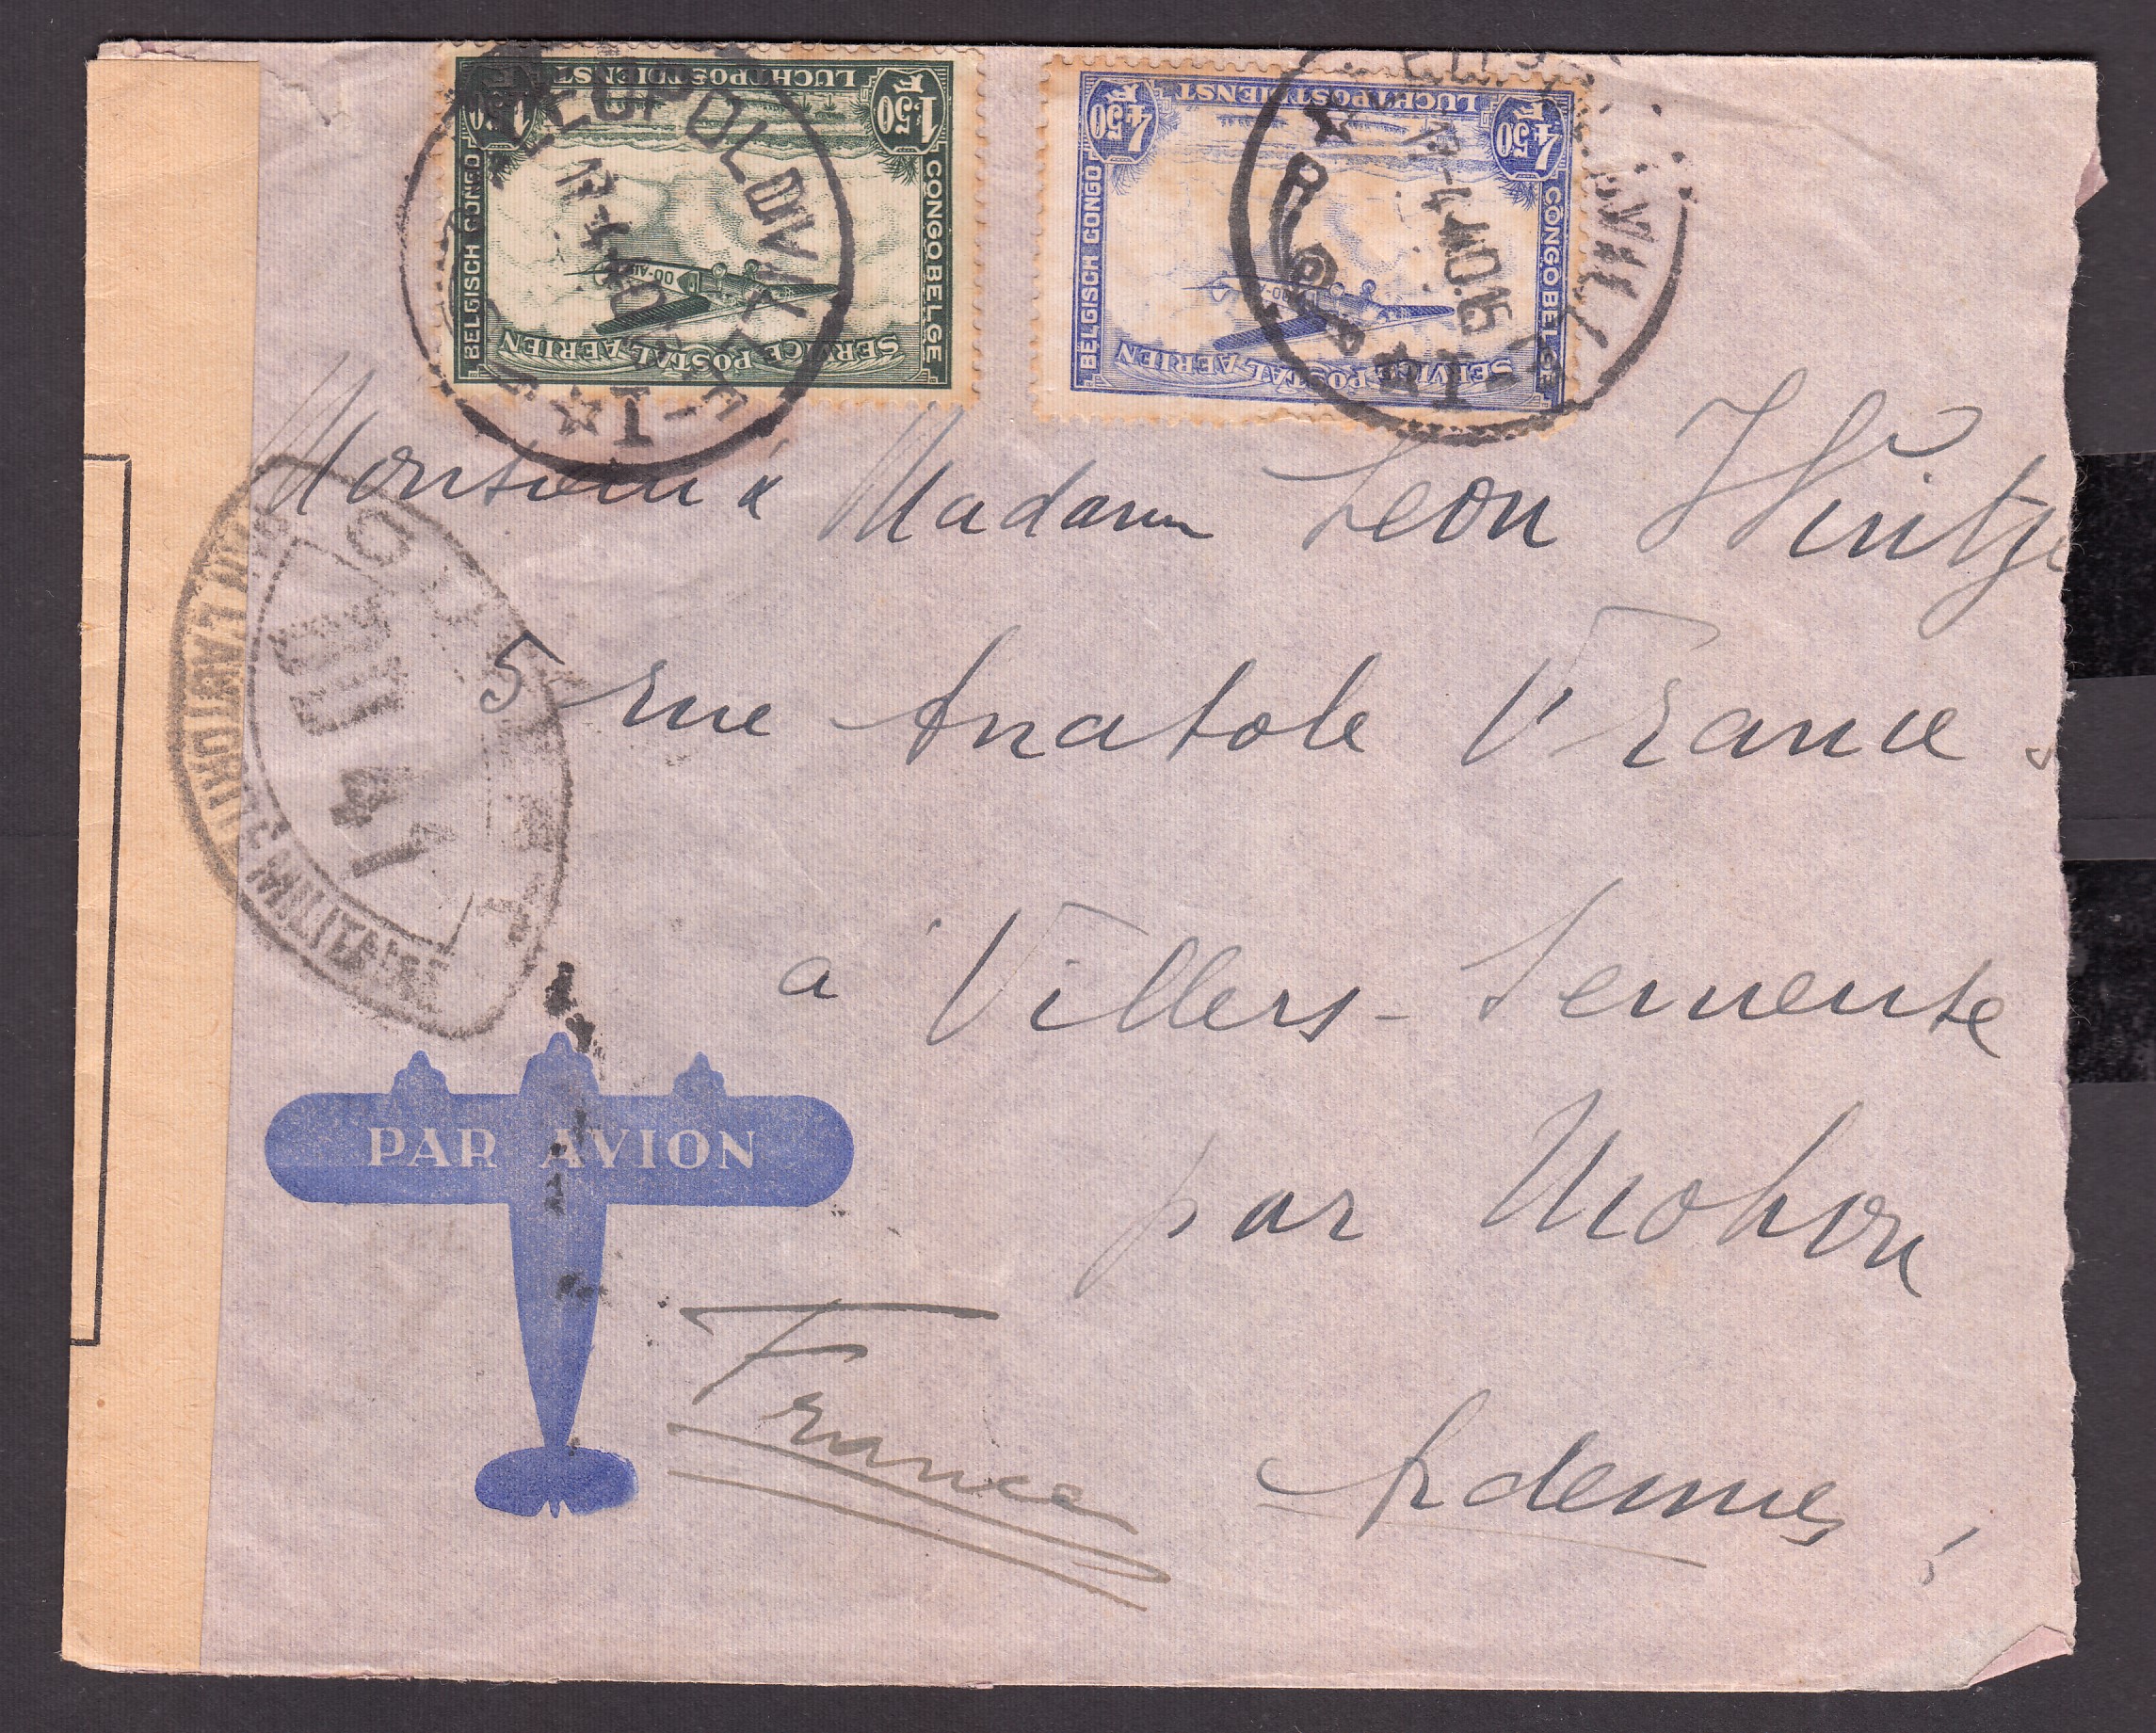 LUCHTPOSTDIENST
1.50 F
BELGISCH CONGO
CONGO BELGE
OO-A
SERVICE POSTAL AERIEN
LEOPOLDVILLE
LUCHTPOSTDIENST
4.50 F
4.50 F
BELGISCH CONGO
CONGO BELGE
OO-A
SERVICE POSTAL AERIEN
Monsieur & Madame Leon
5 rue Anatole France
a Villers - Semeuse
par Mohon
Ardennes
France
PAR L'AUTORITÉ MILITAIRE
OUVERT
PAR AVION